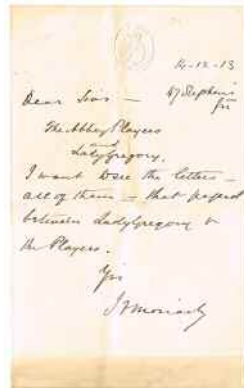 14-12-13
47 Stephens
Grn
Dear Sirs —
The Abbey Players
and
Lady Gregory.
I want to see the letters —
all of them — that passed
between Lady Gregory &
the Players.
Yrs
J F Moriarty